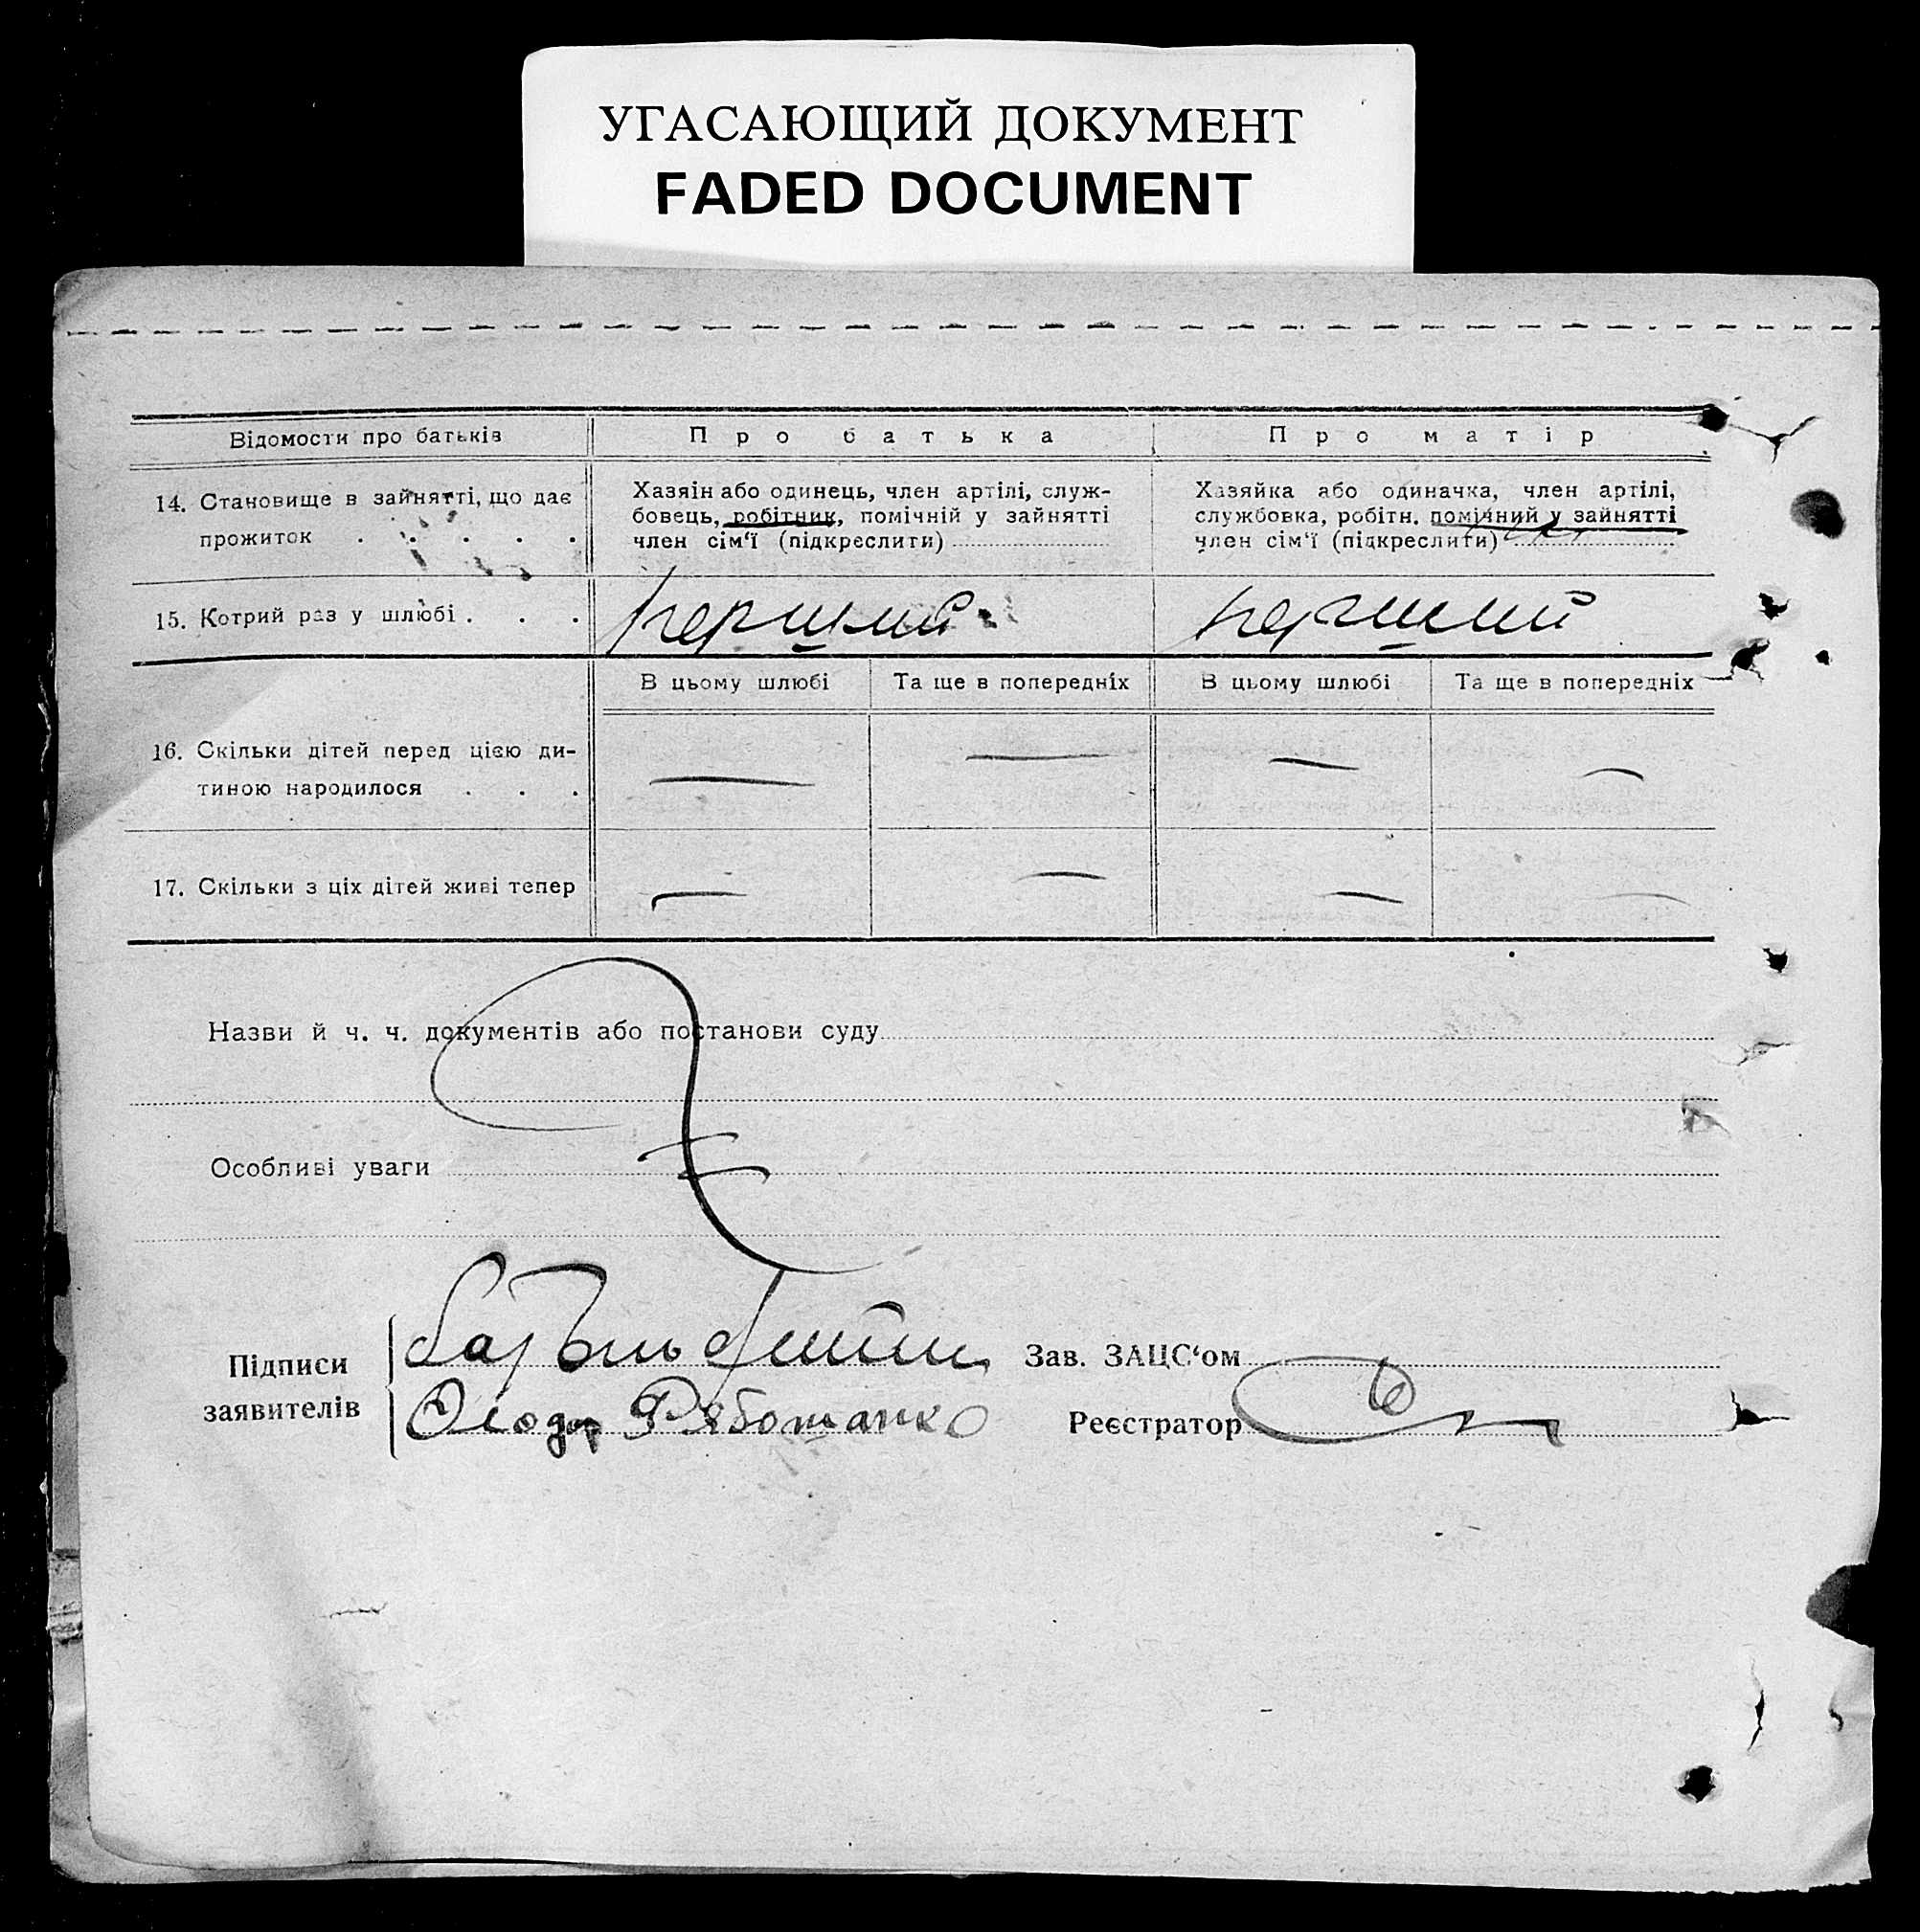 УГАСАЮЩИЙ ДОКУМЕНТ
FADED DOCUMENT
Відомости про батьків
Про батька
Про матір
14. Становище в зайнятті, що дає
прожиток . . . . .
Хазяін або одинець, член артілі, служ-
бовець, робітник, помічній у зайнятті
член сім‘ї (підкреслити)
Хазяйка або одиначка, член артілі,
службовка, робітн. помічний у зайнятті
член сім‘ї (підкреслити)
15. Котрий раз у шлюбі . . .
перший
перший
В цьому шлюбі
Та ще в попередніх
В цьому шлюбі
Та ще в попередніх
16. Скільки дітей перед цією ди-
тиною народилося . . .
— — — —
17. Скільки з ціх дітей живі тепер
— — — —
Назви й ч. ч. документів або постанови суду
Особливі уваги
Підписи
заявителів
Батько дитини
Рябошапко
Зав. ЗАЦС‘ом
Реєстратор